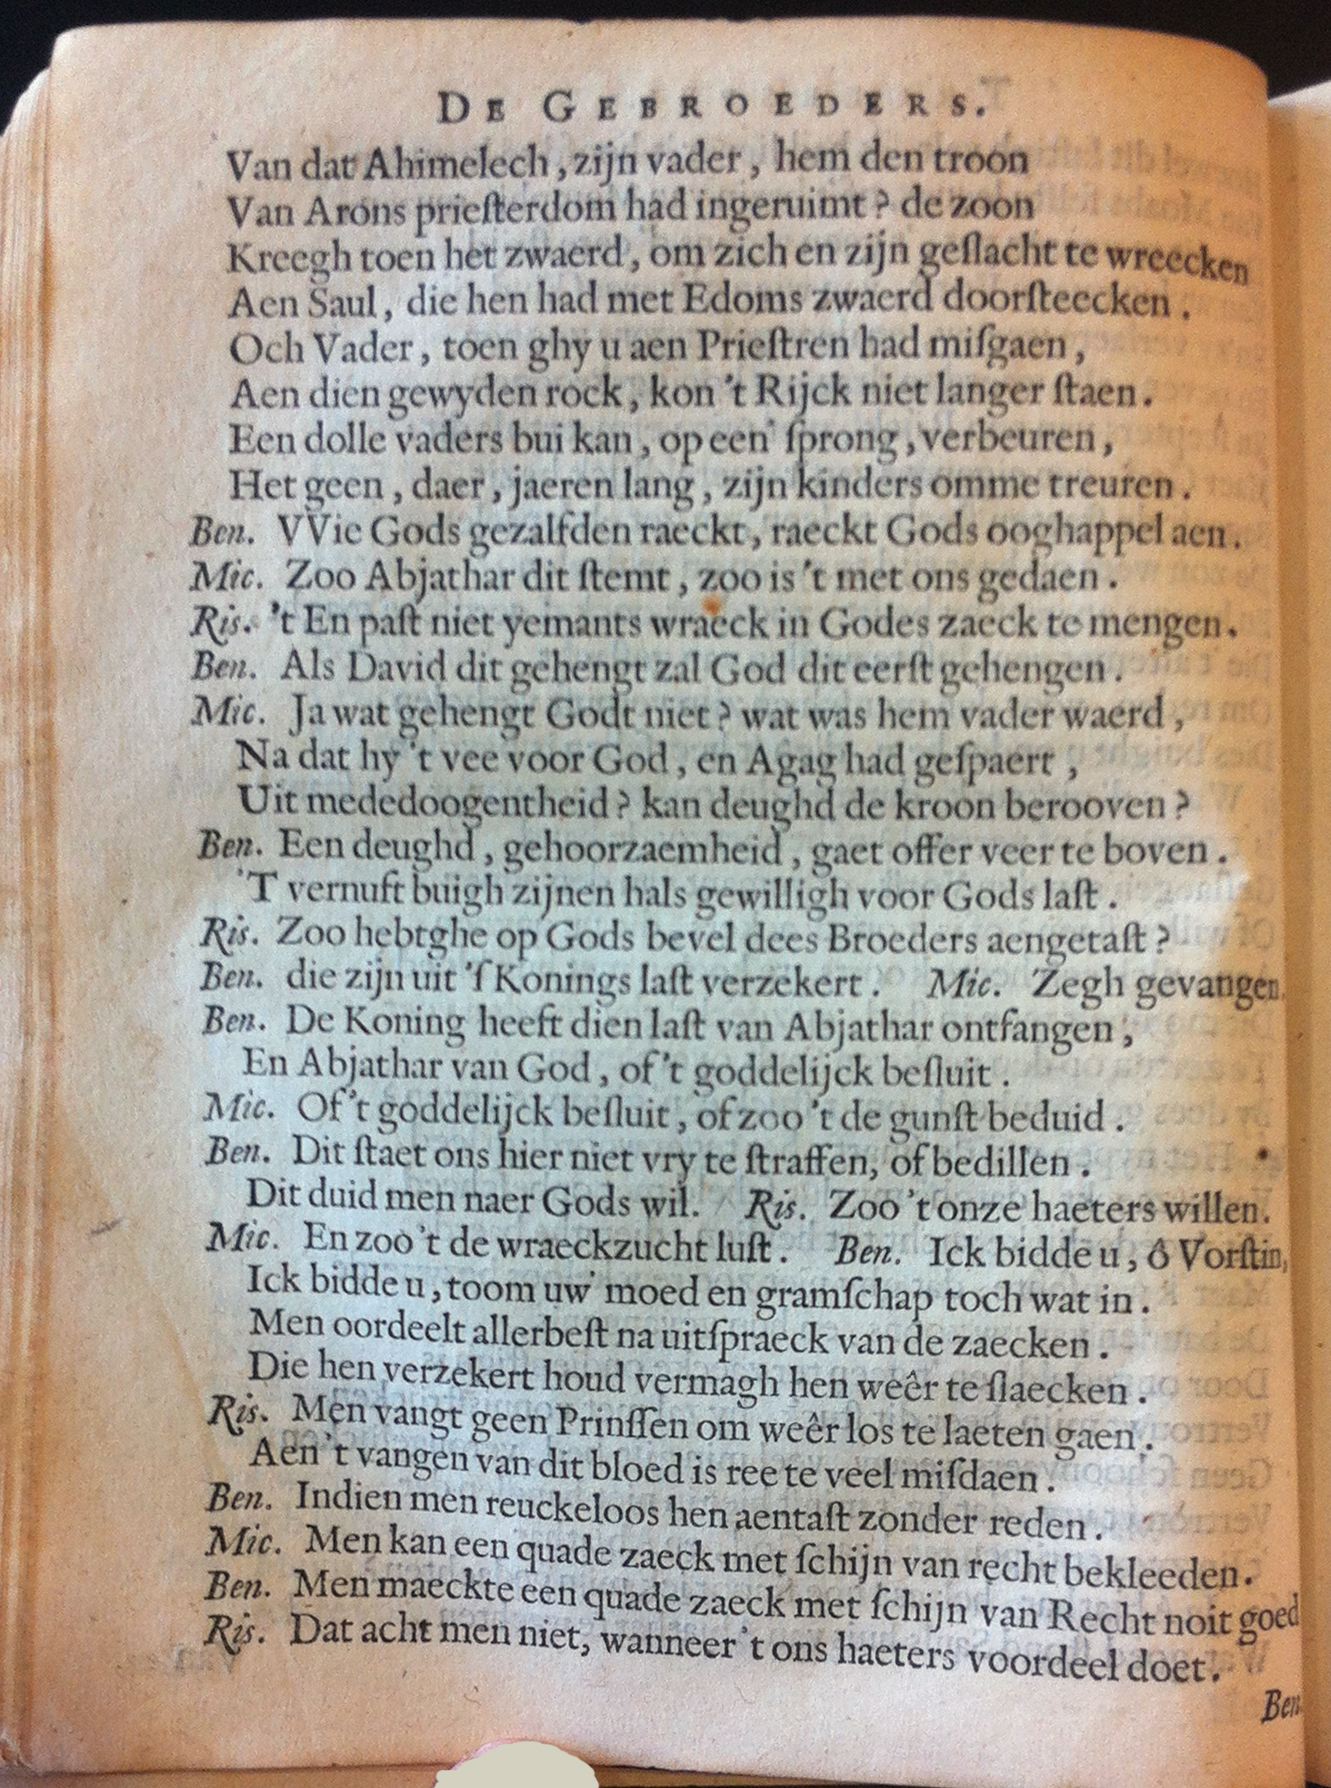 DE GEBROEDERS.
Van dat Ahimelech, zijn vader, hem den troon
Van Arons prieſterdom had ingeruimt? de zoon
Kreegh toen het zwaerd, om zich en zijn geſlacht te wreecken
Aen Saul, die hen had met Edoms zwaerd doorſteecken.
Och Vader, toen ghy u aen Prieſtren had miſgaen,
Aen dien gewyden rock, kon 't Rijck niet langer ſtaen.
Een dolle vaders bui kan, op een' ſprong, verbeuren,
Het geen, daer, jaeren lang, zijn kinders omme treuren.
Ben. VVie Gods gezalfden raeckt, raeckt Gods ooghappel aen.
Mic. Zoo Abjathar dit ſtemt, zoo is 't met ons gedaen.
Ris. 't En paſt niet yemants wraeck in Godes zaeck te mengen.
Ben. Als David dit gehengt zal God dit eerſt gehengen.
Mic. Ja wat gehengt Godt niet? wat was hem vader waerd,
Na dat hy 't vee voor God, en Agag had geſpaert,
Uit mededoogentheid? kan deughd de kroon berooven?
Ben. Een deughd, gehoorzaemheid, gaet offer veer te boven.
'T vernuft buigh zijnen hals gewilligh voor Gods laſt.
Ris. Zoo hebtghe op Gods bevel dees Broeders aengetaſt?
Ben. die zijn uit 'ſ Konings laſt verzekert. Mic. Zegh gevangen.
Ben. De Koning heeft dien laſt van Abjathar ontfangen,
En Abjathar van God, of 't goddelijck beſluit.
Mic. Of 't goddelijck beſluit, of zoo 't de gunſt beduid.
Ben. Dit ſtaet ons hier niet vry te ſtraffen, of bedillen.
Dit duid men naer Gods wil. Ris. Zoo 't onze haeters willen.
Mic. En zoo 't de wraeckzucht luſt. Ben. Ick bidde u, ô Vorſtin,
Ick bidde u, toom uw' moed en gramſchap toch wat in.
Men oordeelt allerbeſt na uitſpraeck van de zaecken.
Die hen verzekert houd vermagh hen weêr te ſlaecken.
Ris. Men vangt geen Prinſſen om weêr los te laeten gaen.
Aen 't vangen van dit bloed is ree te veel miſdaen.
Ben. Indien men reuckeloos hen aentaſt zonder reden.
Mic. Men kan een quade zaeck met ſchijn van recht bekleeden.
Ben. Men maeckte een quade zaeck met ſchijn van Recht noit goed
Ris. Dat acht men niet, wanneer 't ons haeters voordeel doet.
Ben.